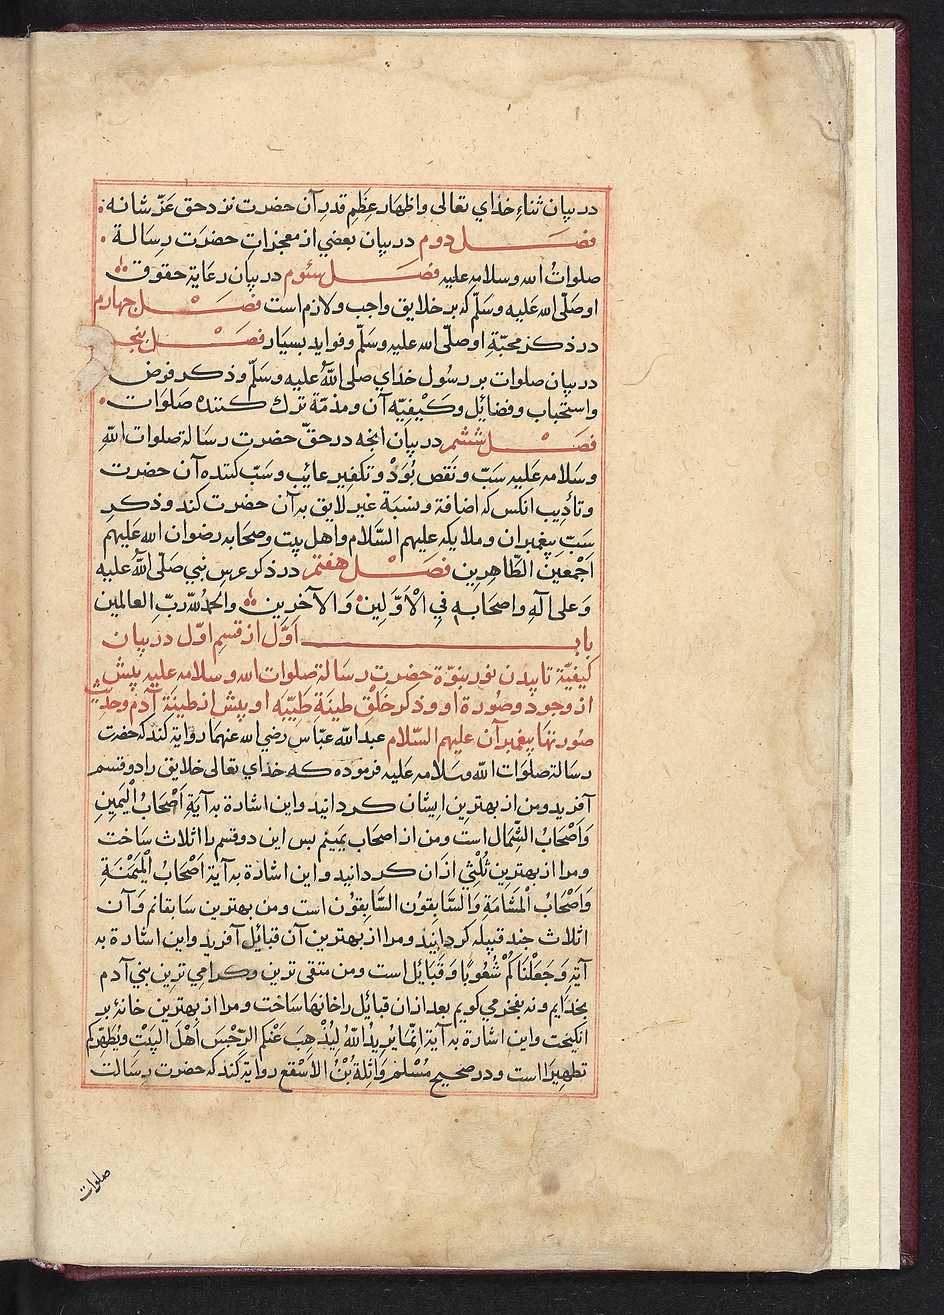 در بیان ثناء خدای تعالی واظهار عِظَمِ قدر آن حضرت نزد حق عَزّ شانه
فصل دوم در بیان بعضي از معجزاتِ حضرَت رِسَالة
صلواتُ الله وسلامه علیه فصل سئوم در بیان رعایة حقوق
او صلّی الله علیه وسلّم که بر خلایق واجب ولازم است فصل چهارم
در ذکر محبّةِ او صلّی الله علیه وسلّم وفواید بسیار فصل پنجم
در بیان صلوات بر رسول خدای صلی اللهُ علیه وسلّم وذکر فرض
واستحباب وفضائل وکَیْفِیّه آن ومذمّة ترك کننده صلوَات
فصل ششم در بیان انجه در حقّ حضرت رسالة صلوات اللهِ
وسَلامه عَلیه سَبّ ونَقص بُوَدْ وتکفیر عائب وسَبّ کننده آن حضرت
وتأدِیب انکس که اضافة ونسبَة غیر لایق به آن حضرت کند وذکر
سَبّ پیغمبران وملایکه علیهم السَّلام واهل بیت وصحَابه رضوان الله علیهم
اَجْمَعین الطّاهِرین فصل هفتم در ذکر عرس نبي صلّی اللهُ علیه
وَعلی آلهِ واصحَابهِ فِي الْاَوّلین وَالآخرین والحمدُ للهِ ربّ العالمین
باب اوّل از قسمِ اوّل در بیان
کیفیّة تابیدن نور نبوّة حضرت رسالة صلوات الله وسلامه علیه پیش
از وجود وصُورة او وذکر خَلقِ طینَةِ طیّبَه او پیش از طینَة آدم وحدیث
صورتها پیغمبرآن علیهم السّلام عبد الله عبّاس رضي الله عنهما روایة کند که حضرت
رسالة صلوَات اللهِ وسَلامه علیه فرموده که خدای تعالی خلایق را دو قسم
آفرید ومن از بهترین اِیشان کردانید واین اشارَة به آیَةِ اَصْحَابُ الْیَمینِ
وَاَصْحَابُ الشِّمَال است ومن از اصحَاب یَمینم بس این دو قسم را اثلاث سَاخت
ومرا از بهترین ثُلثي ازآن کردانید واین اشارة به آیة اَصْحَابُ الْمَیْمَنَةِ
وَاَصْحَابُ الْمَشْاَمَةِ وَالسَّابِقوُن السَّابِقوُن است ومن بهترین سَابقانم وَآن
اثلاث جند قبیله کردانید ومرا از بهترین آن قبائل آفرید واین اشارة به
آیَةِ وَجَعَلْنَاکُمْ شُعُوبًا وَقَبَائل است ومن متقی ترین وکرامي ترین بنَي آدم
بخدایم ونه بفخر مي کویم بعد ازان قبائل را خانهَا سَاخت ومرا از بهترین خانهٔ بر
انکیخت واین اشارَة به آیَة اِنّمَا یُرِیدُ اللهُ لِیُذْهِبَ عَنْکُم الرِّجْسَ اَهْلَ الْبَیْتِ ویُطَهِّرَکم
تطهِیرًا است ودر صحیحِ مُسْلم وَاثِلة بْنُ الاَسْقع روایة کند که حضرت رسالت
صلوات